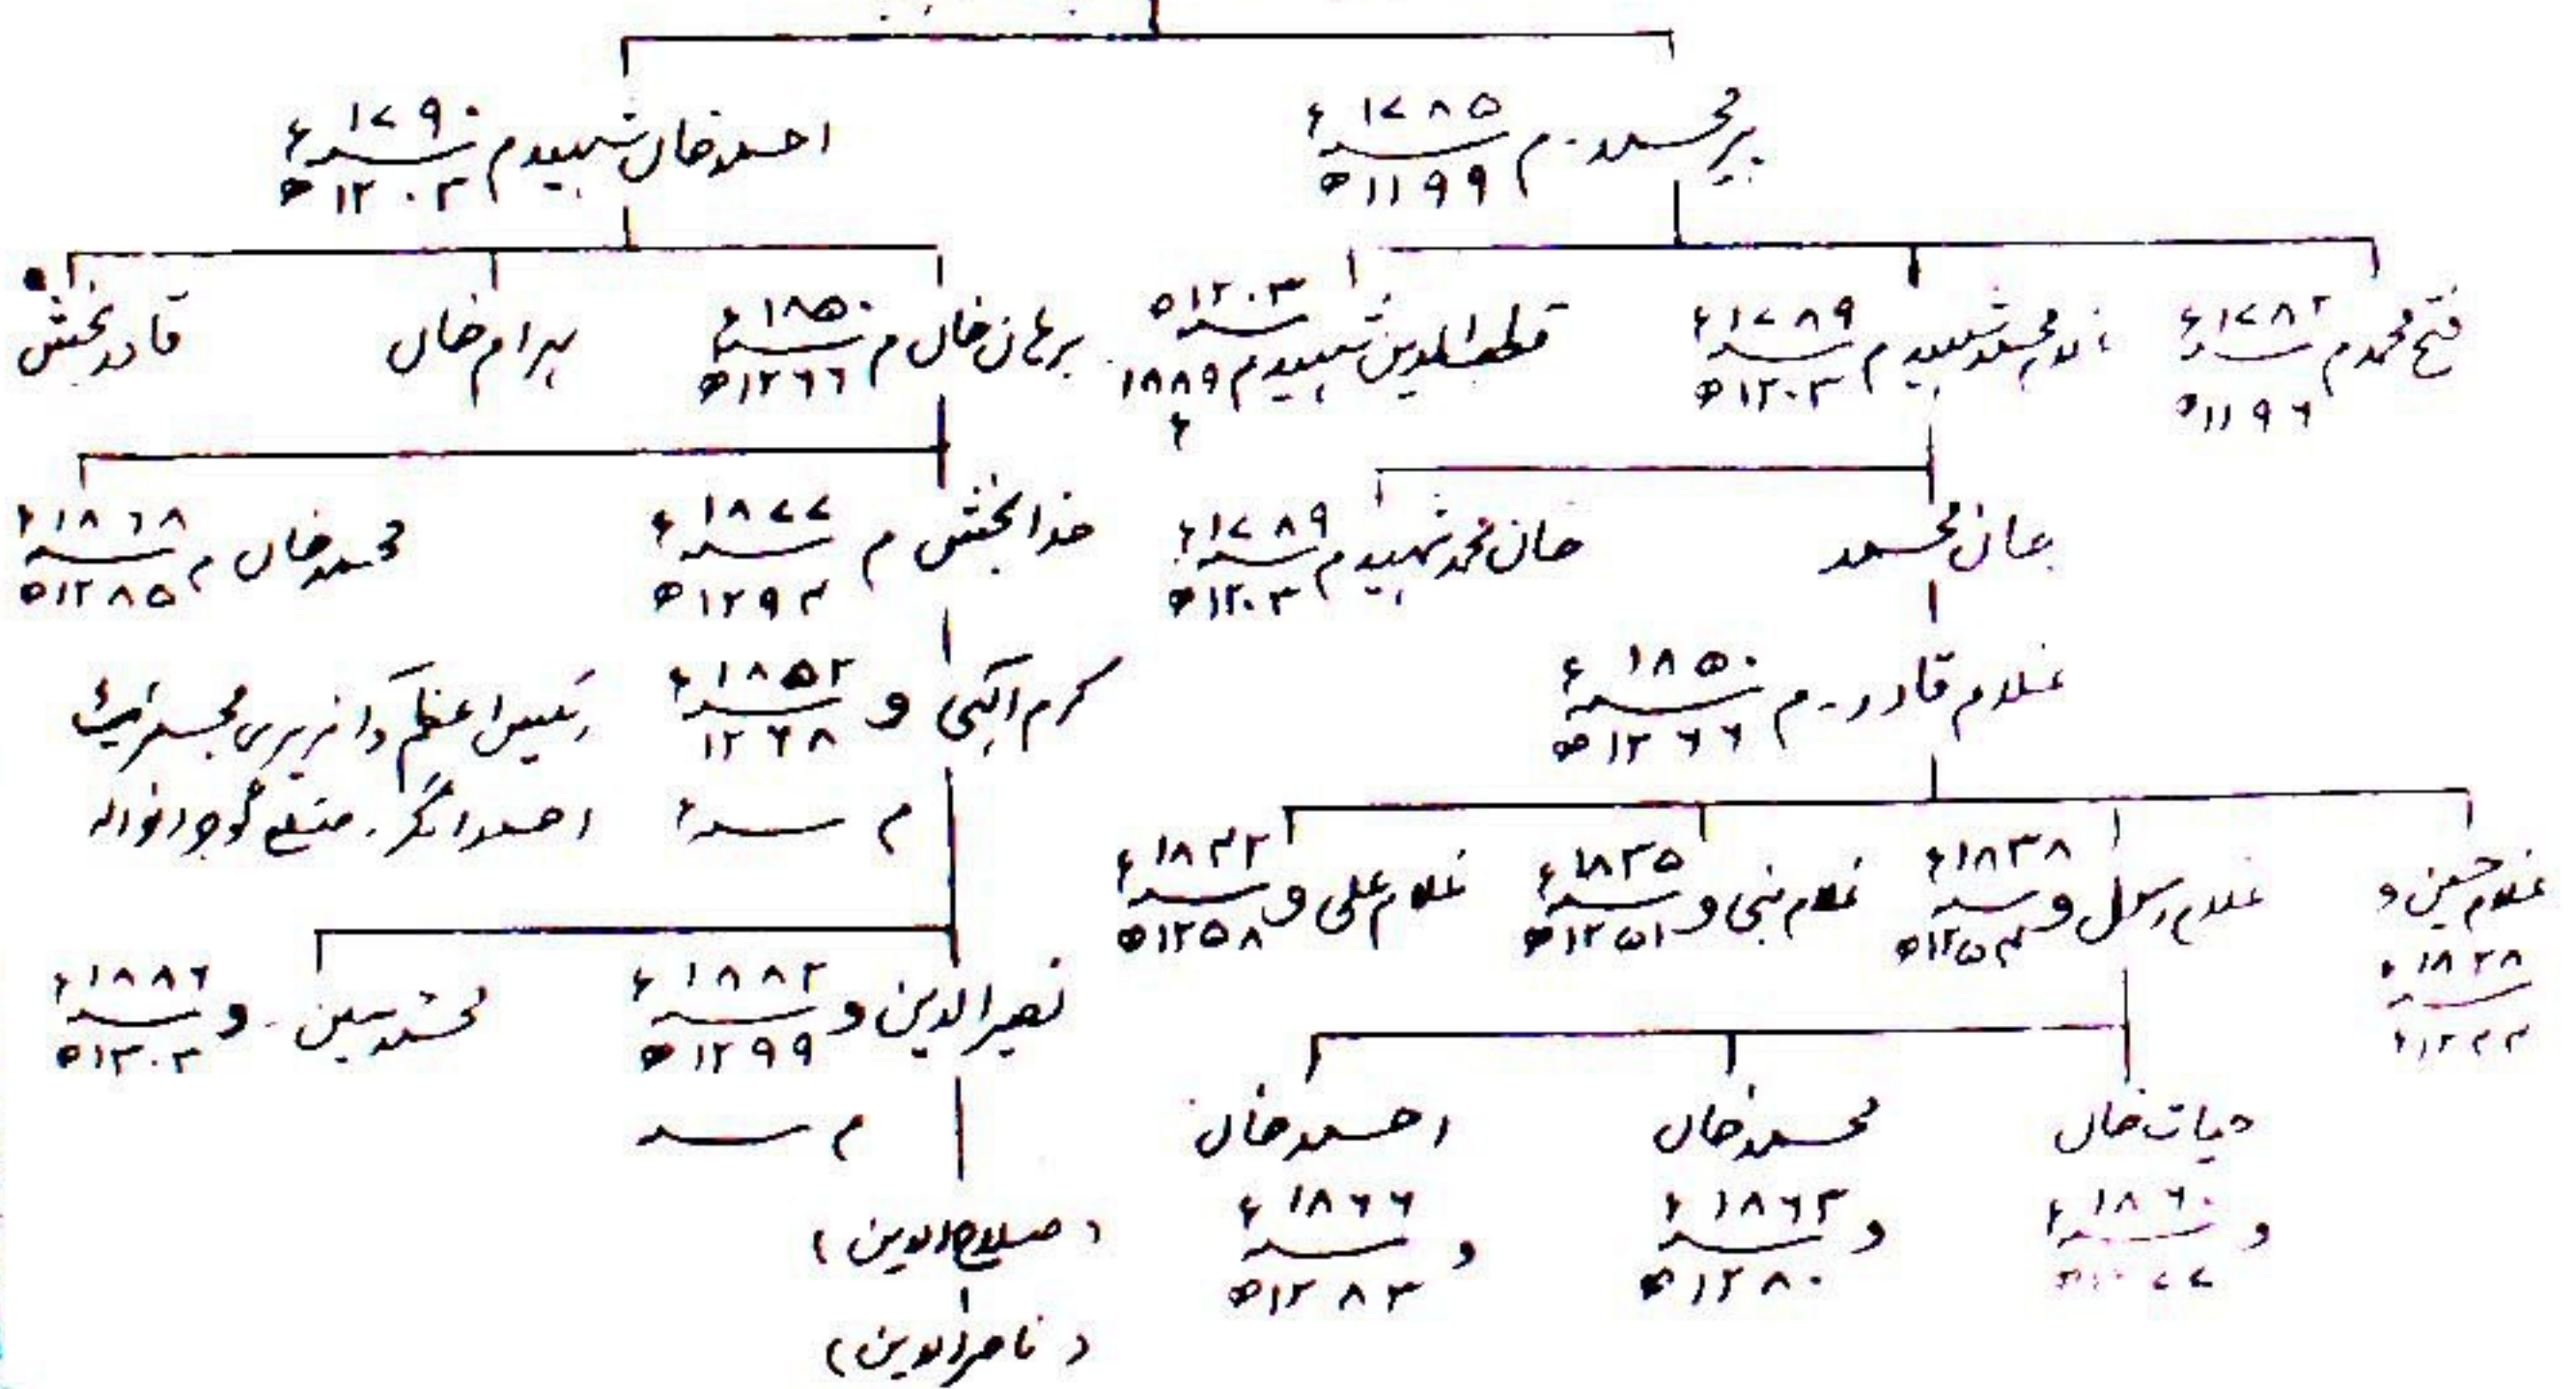 پیر محمد - م ۱۷۸۵ء / ۱۱۹۹ھ
احمد خاں شہید م ۱۷۹۰ء / ۱۲۰۴ھ
فتح محمد م ۱۷۸۲ء / ۱۱۹۶ھ
محمد شہید م ۱۷۸۹ء / ۱۲۰۳ھ
قطب الدین شہید م ۱۲۰۳ھ / ۱۸۸۹ء
برهان خاں م ۱۸۵۰ء / ۱۲۶۶ھ
بہرام خاں
قادر بخش
جان محمد
خان محمد شہید م ۱۷۸۹ء / ۱۲۰۳ھ
خدا بخش م ۱۸۷۷ء / ۱۲۹۴ھ
محمد خاں م ۱۸۶۸ء / ۱۲۸۵ھ
غلام قادر - م ۱۸۵۰ء / ۱۲۶۶ھ
کرم الٰہی و ۱۸۵۲ء / ۱۲۶۸
رئیس اعظم و آنریری مجسٹریٹ
م سنہء
احمد نگر - ضلع گوجرانوالہ
غلام حسین و ۱۸۲۸ء / ۱۲۴۴
غلام رسول و ۱۸۳۸ء / ۱۲۵۴ھ
غلام نبی و ۱۸۳۵ء / ۱۲۵۱ھ
غلام علی و ۱۸۴۲ء / ۱۲۵۸ھ
نصیر الدین و ۱۸۸۲ء / ۱۲۹۹ھ
م سنہ
محمد حسین - و ۱۸۸۶ء / ۱۳۰۳ھ
حیات خاں
و ۱۸۶۰ء
محمد خاں
و ۱۸۶۳ء / ۱۲۸۰ھ
احمد خاں
و ۱۸۶۶ء / ۱۲۸۳ھ
(صلاح الدین)
(ناصر الدین)